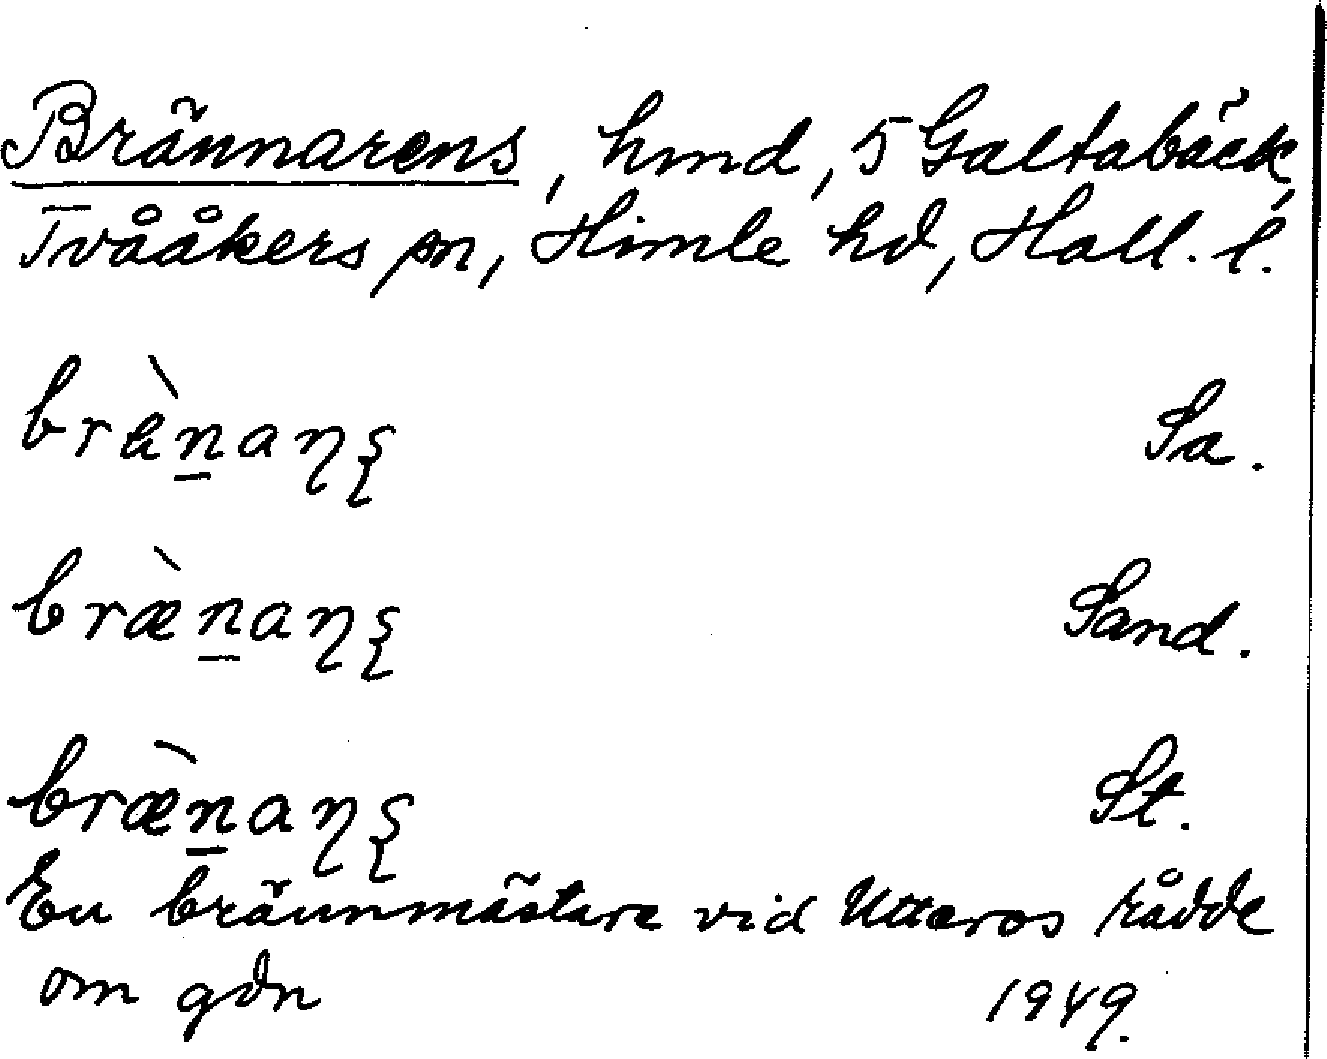 Brännarens, hmd, 5 Galtabäck,
Tvååkers sn, Himle hd, Hall. l.
brànaꞃʂ Sa.
bræ̀naꞃʂ Sand.
bræ̀naꞃʂ St.
En brännmästare vid Utteros rådde
om gdn 1949.